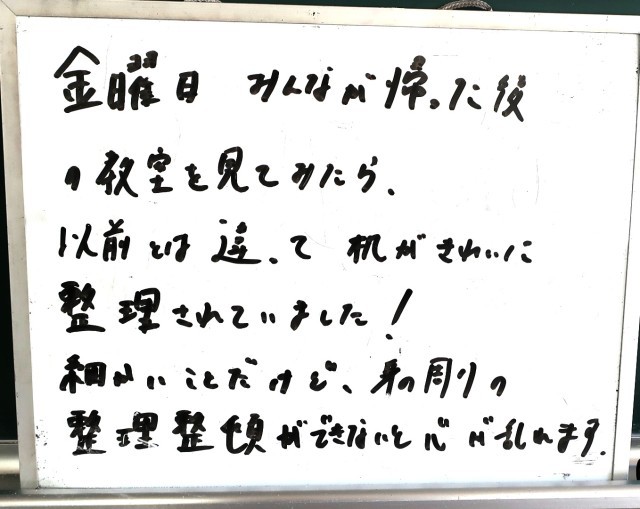 金曜日 みんなが帰った後
の教室を見てみたら、
以前とは違って机がきれいに
整理されていました!
細かいことだけど、身の周りの
整理整頓ができないと心が乱れます。